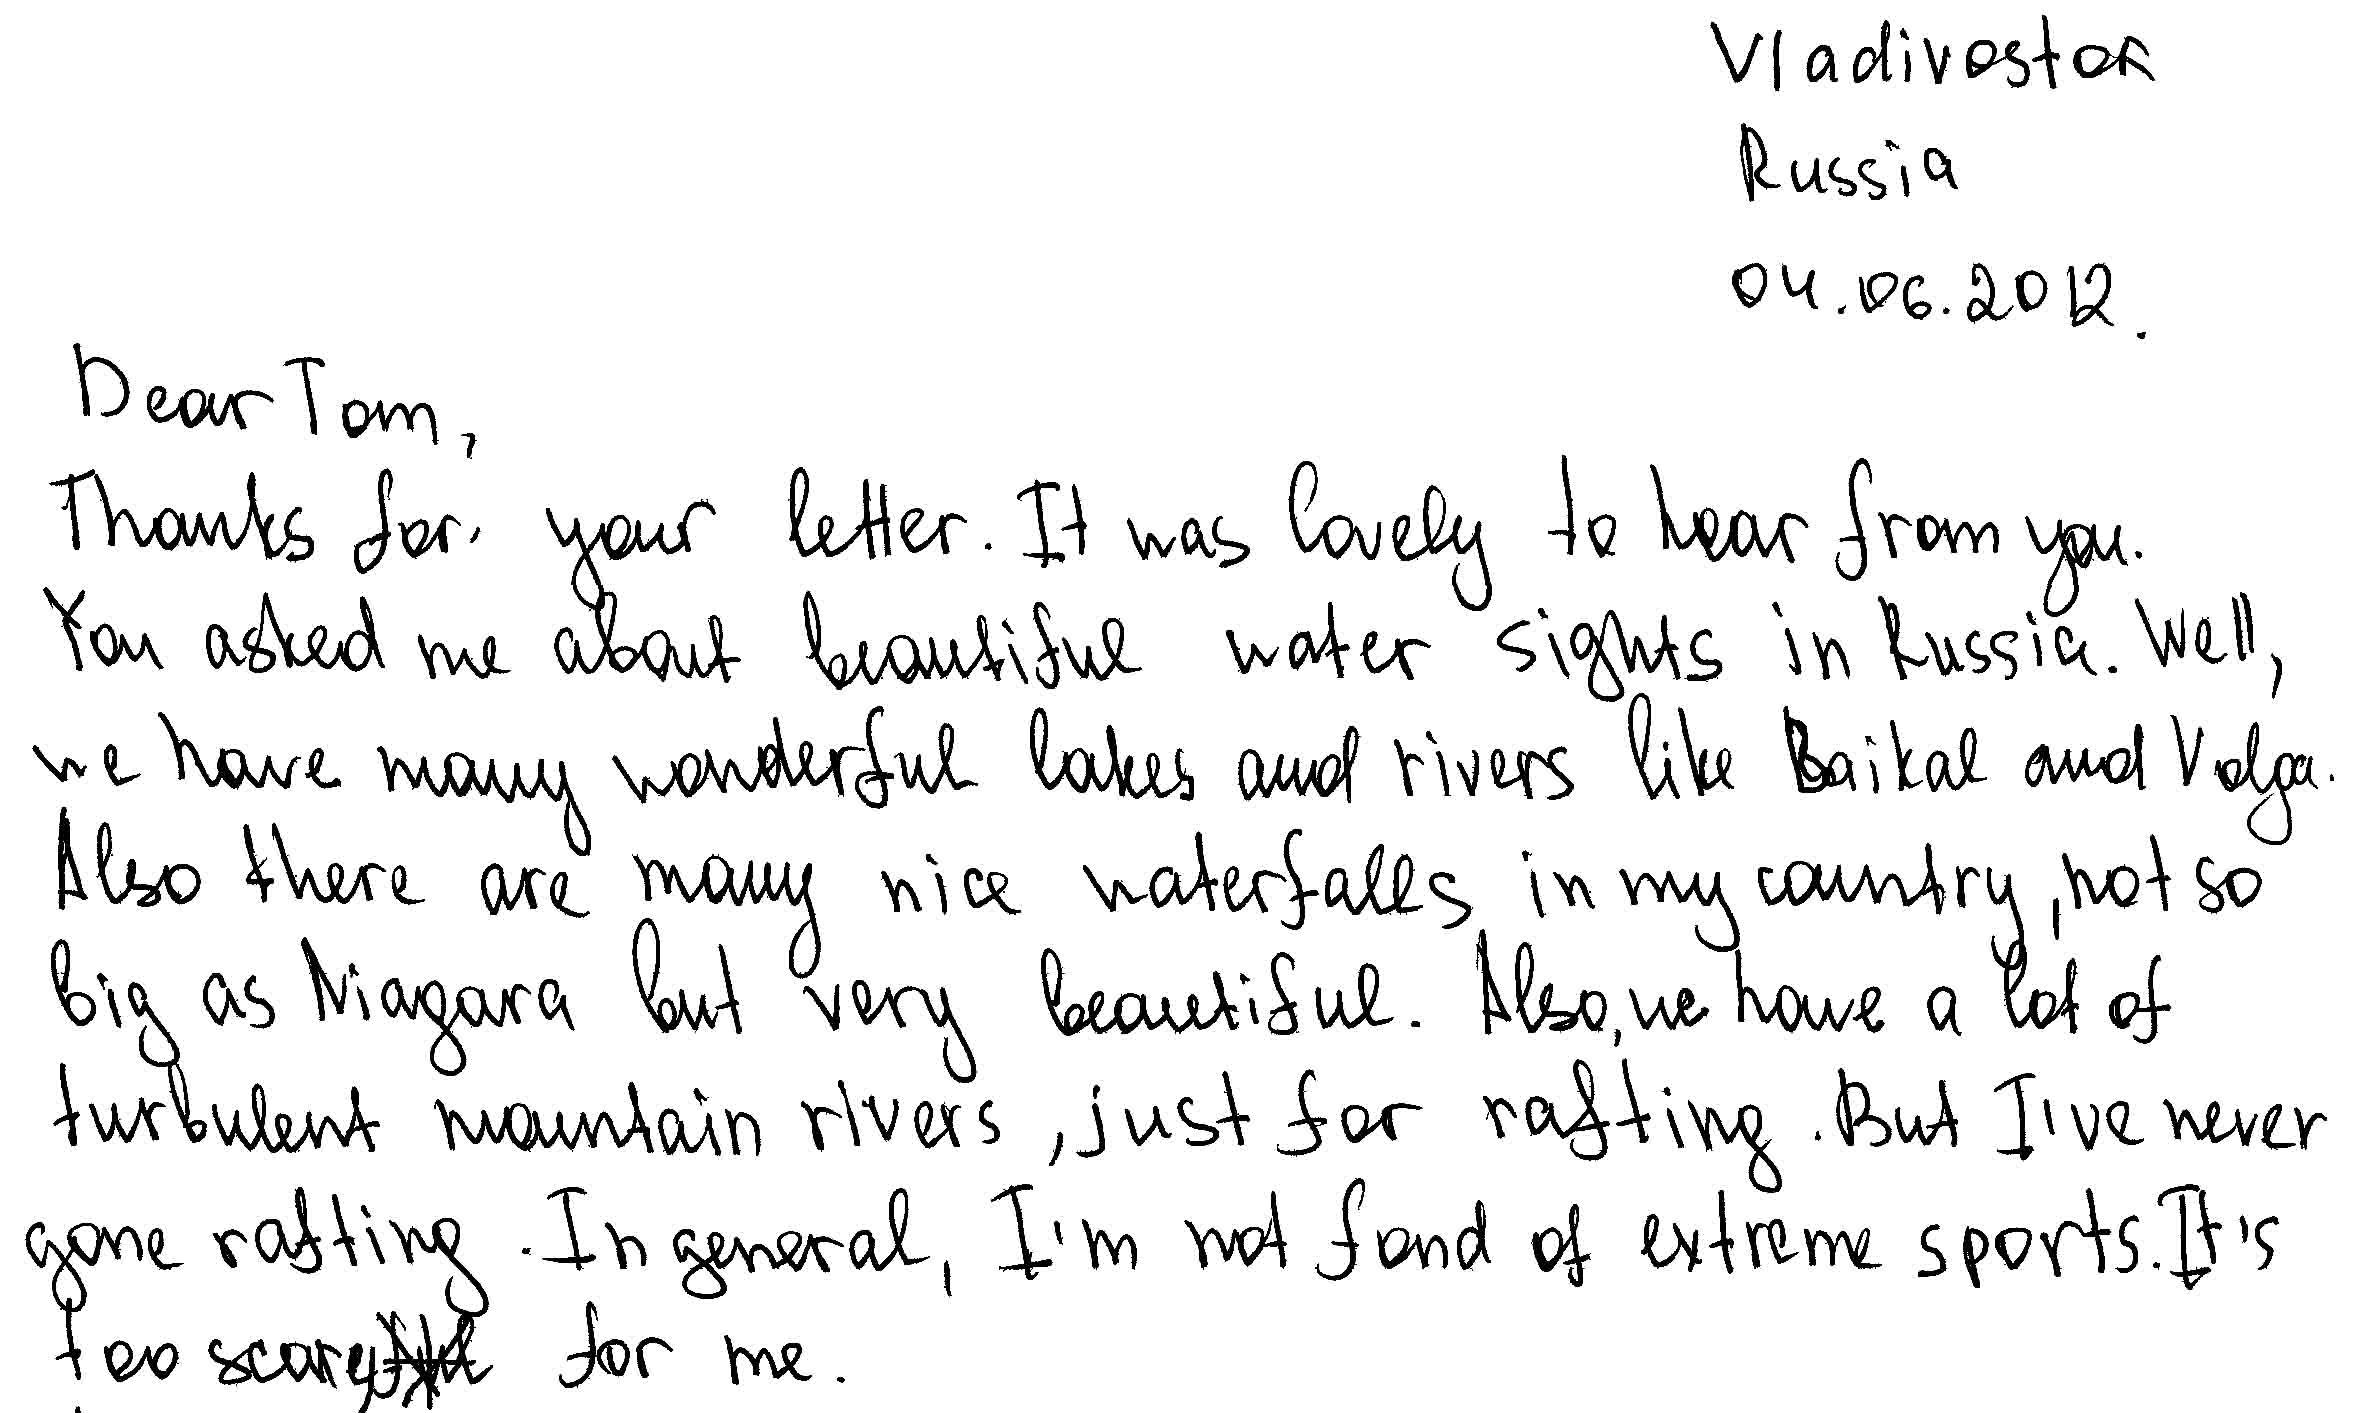 Vladivostok
Russia
04.06.2012.
Dear Tom,
Thanks for your letter. It was lovely to hear from you.
You asked me about beautiful water sights in Russia. Well,
we have many wonderful lakes and rivers like Baikal and Volga.
Also there are many nice waterfalls in my country, not so
big as Niagara but very beautiful. Also, we have a lot of
turbulent mountain rivers, just for rafting. But I've never
gone rafting. In general, I'm not fond of extreme sports. It's
too scary for me.